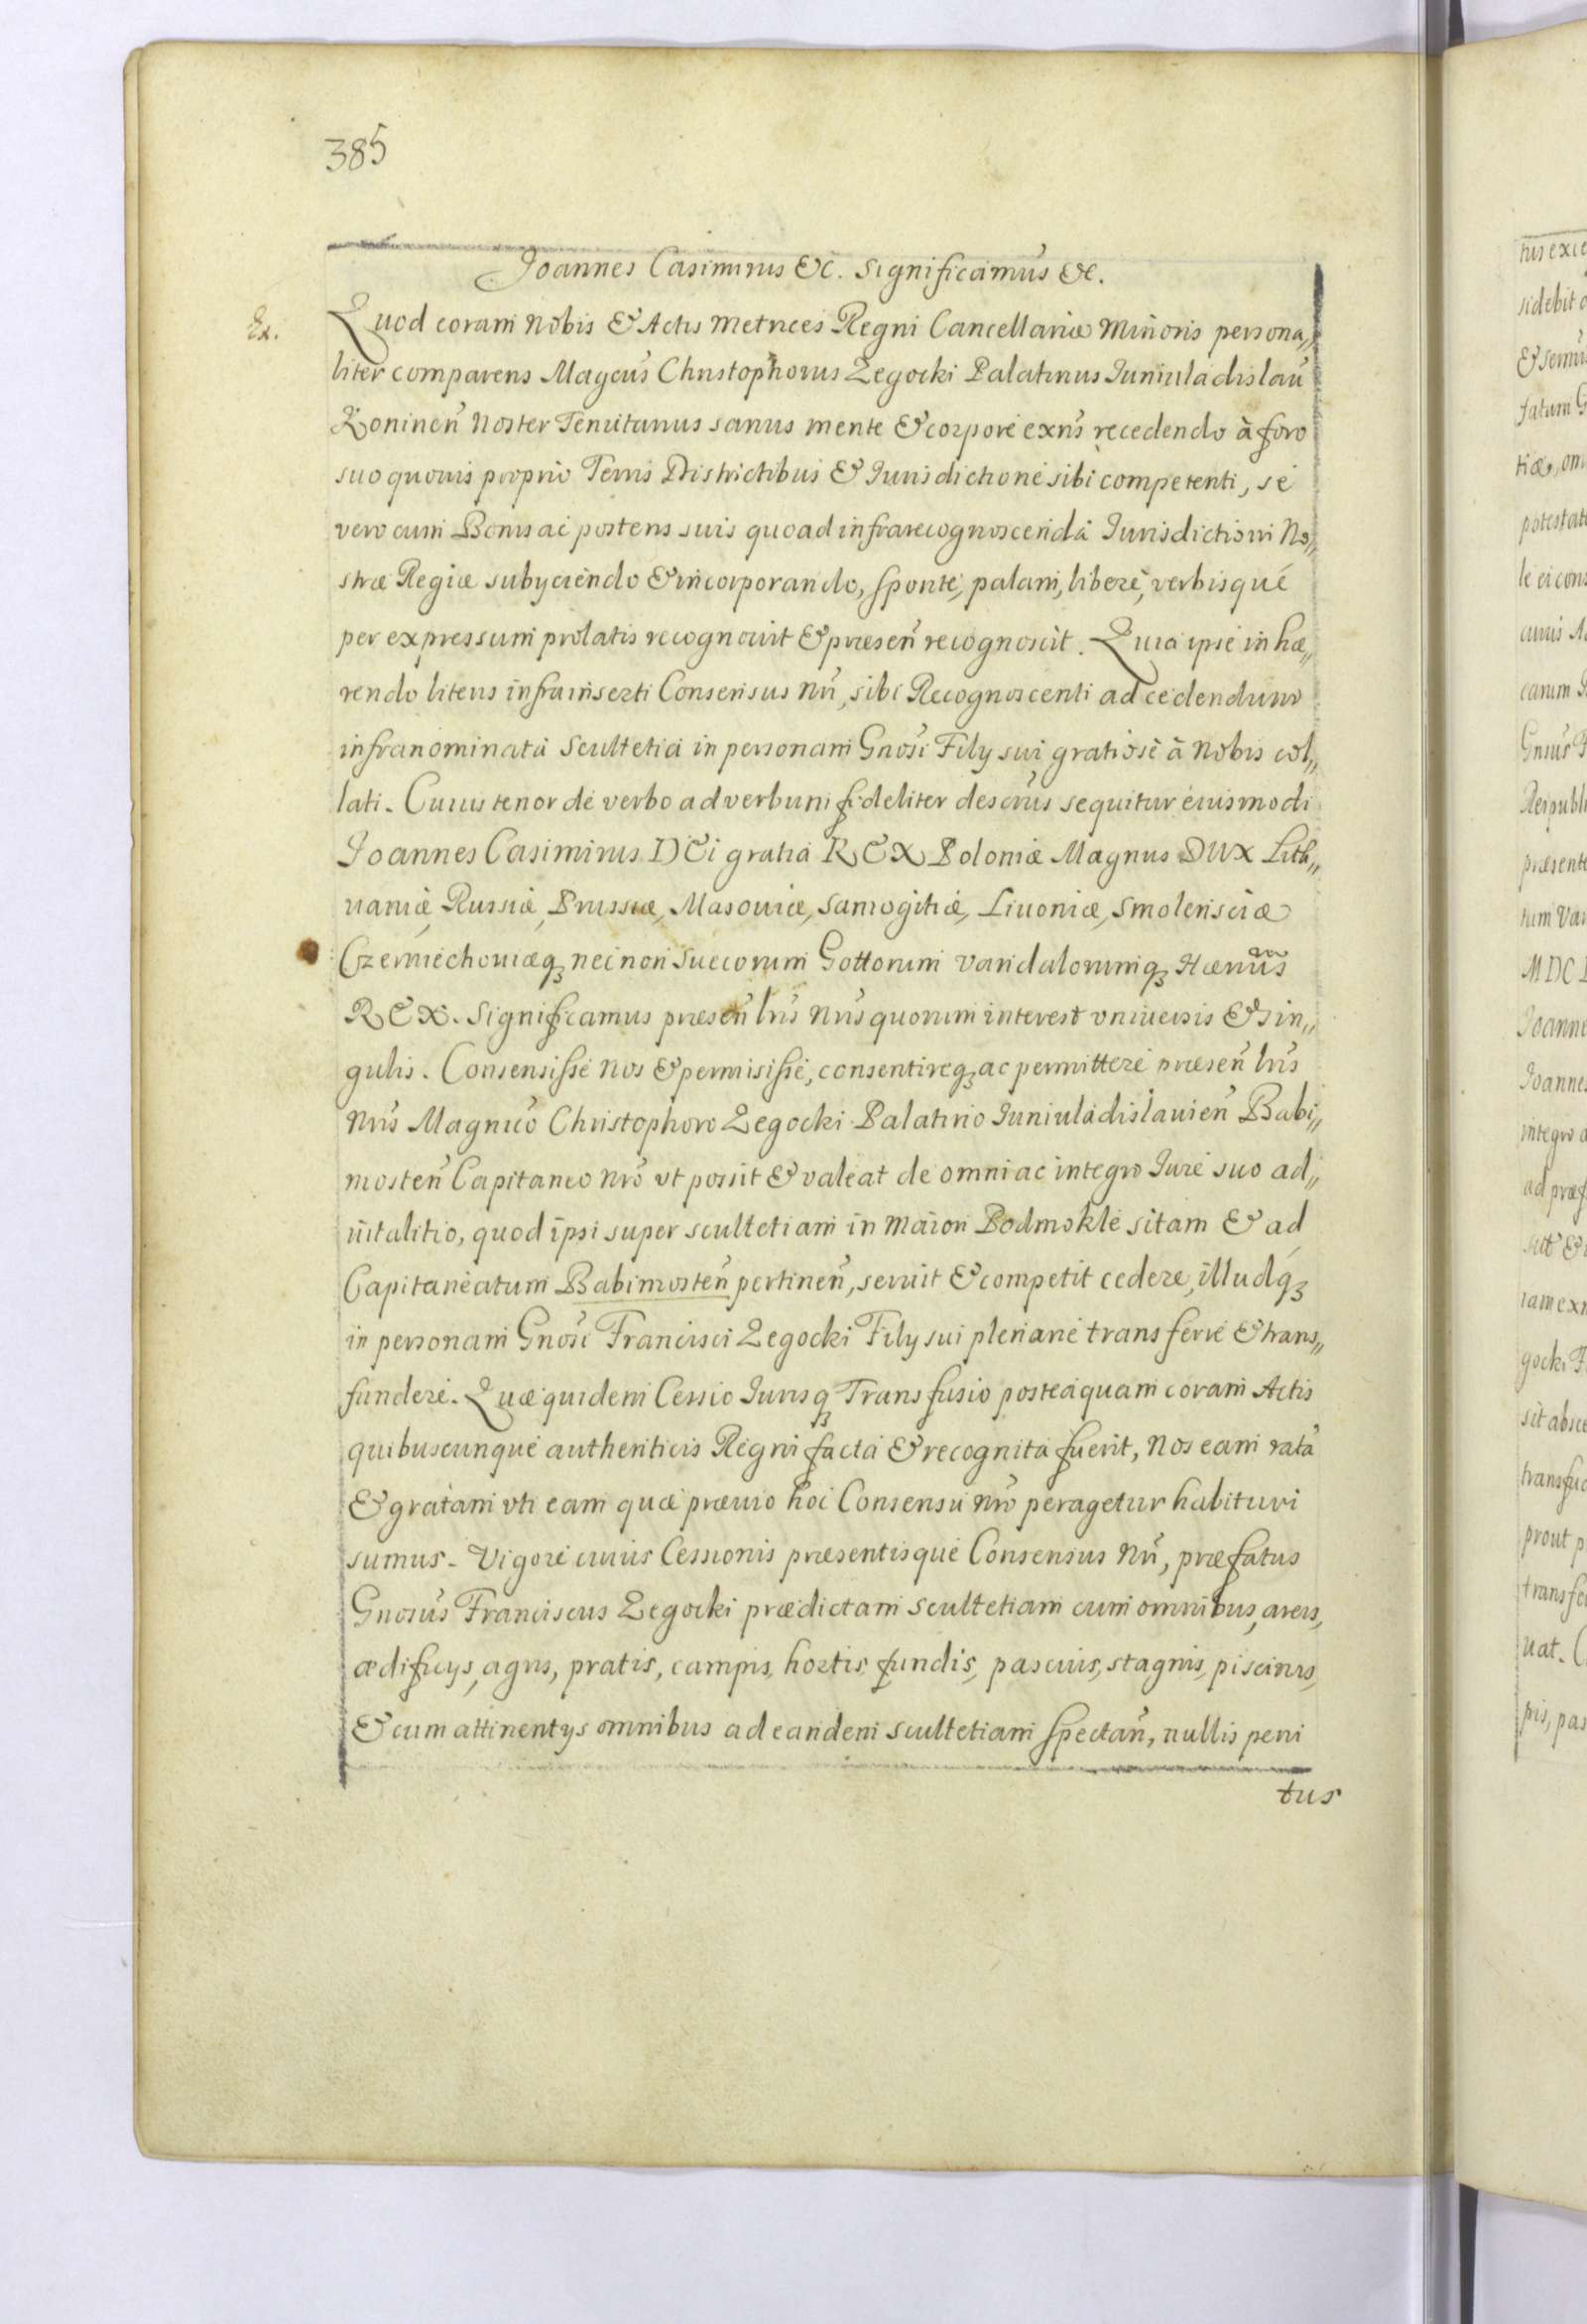 385
Joannes Casimirus &c. Significamus &c.
Ex.
Quod coram Nobis & Actis Metrices Regni Cancellariæ Minoris persona,,
liter comparens Magcus Christophorus Zegocki Palatinus Juniuladislaň
Koninen̄ Noster Tenutarius sanus mente & corpore exn̄s recedendo à foro
suo quovis proprio Terris Districtibus & Jurisdictione sibi competenti, se
vero cum Bonis ac posteris suis quoad infrarecognoscenda Jurisdictioni No,,
stræ Regiæ subyciendo & incorporando, sponte, palam, libere, verbisque
per expressum prolatis recognovit & præsen̄ recognoscit. Quia ipse inhæ,,
rendo literis infrainserti Consensus Nr̄i, sibi Recognoscenti ad cedendum
infranominata Scultetia in personam Gnosi Filÿ sui gratiose à Nobis col,,
lati. Cuius tenor de verbo ad verbum fideliter descr̄us sequitur eiusmodi
Joannes Casimirus DEi gratia REX Poloniæ Magnus DUX Lith,,
uaniæ, Russiæ, Prussiæ, Masoviæ, Samogitiæ, Livoniæ, Smolensciæ
Czerniechoviæq3 nec non Suecorum Gottorum Vandalorumq3 Hæriūs
REX. Significamus præsen̄ lr̄is Nr̄is quorum interest vniversis & sin,,
gulis. Consensisse Nos & permisisse, consentireq3 ac permittere præsen̄ lr̄is
Nr̄is Magnico Christophoro Zegocki Palatino Juniuladislavien̄ Babi,,
mosten̄ Capitaneo Nr̄o vt possit & valeat de omni ac integro Jure suo ad,,
vitalitio, quod ipsi super scultetiam in Maiori Podmokle sitam & ad
Capitaneatum Babimosten̄ pertinen̄, servit & competit cedere, illudq3
in personam Gnosi Francisci Zegocki Filÿ sui plenarie transferre & trans,,
fundere. Quæ quidem Cessio Jurisq3 Transfusio posteaquam coram Actis
quibuscunque authenticis Regni facta & recognita fuerit, Nos eam ratā
& gratam vti eam quæ prævio hoc Consensu Nr̄o peragetur habituri
sumus. Vigore cuius Cessionis præsentisque Consensus Nr̄i, præfatus
Gnosus Franciscus Zegocki prædictam scultetiam cum omnibus, areis,
ædificÿs, agris, pratis, campis, hortis, fundis, pascuis, stagnis, piscinis,
& cum attinentÿs omnibus ad eandem scultetiam spectan̄, nullis peni
tus